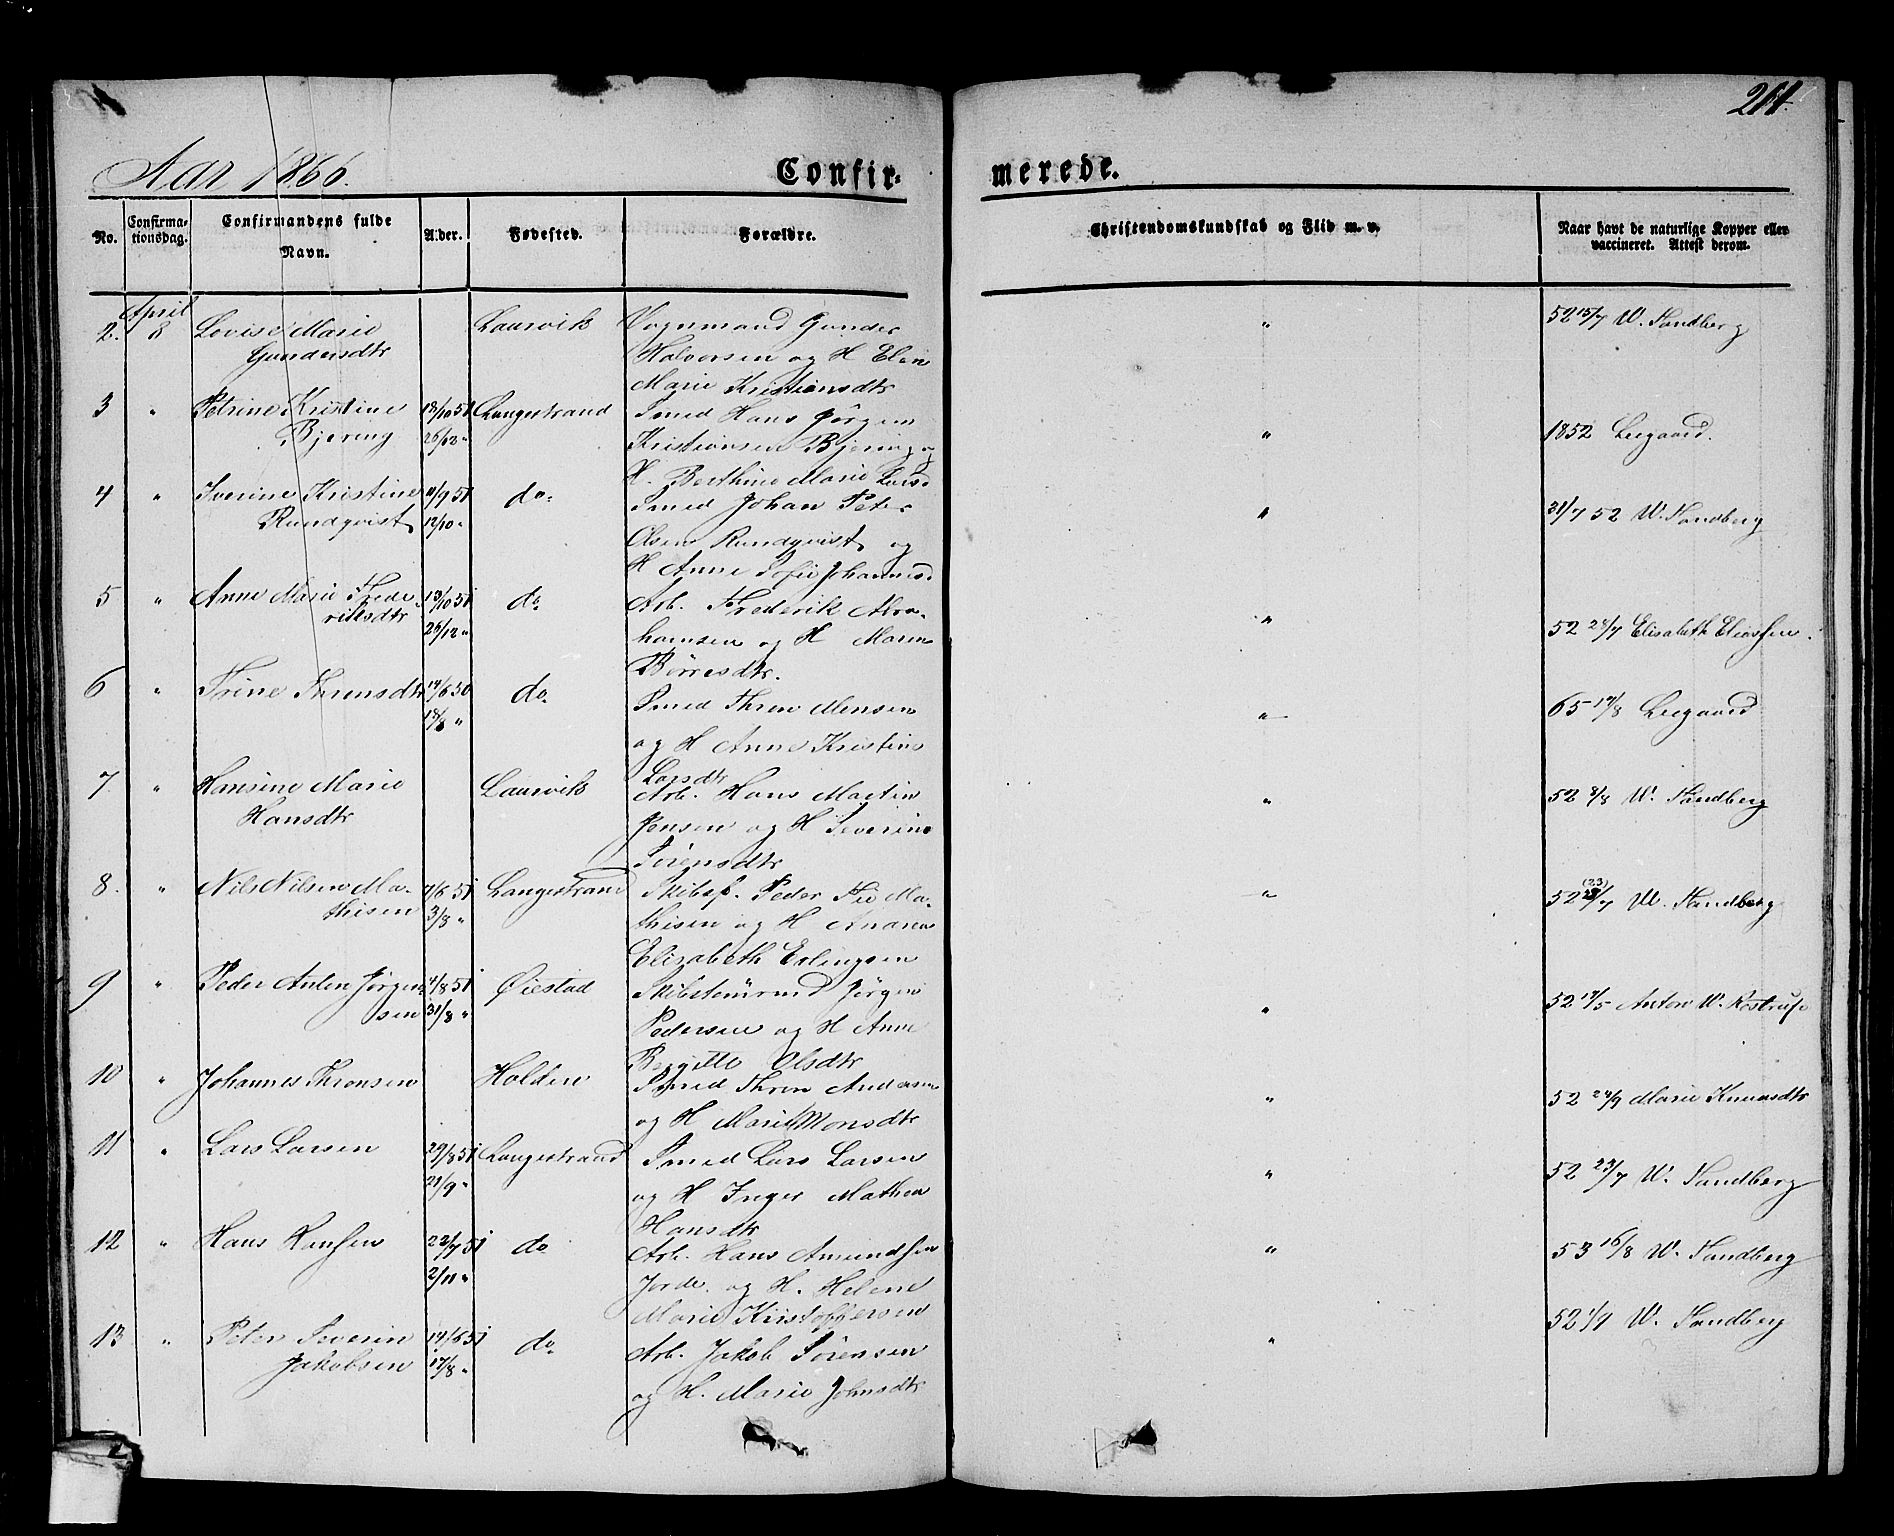 211.
Aar 1866.
Confir-
merede.
No.
Confirma-
tionsdag.
Confirmandens fulde
Navn.
Alder.
Fødested.
Forældre.
Christendomskundskab og Flid m. v.
Naar havt de naturlige Kopper eller
vaccineret. Attest derom.
April
2. 8 Lovise Marie Laurvik Vognmand Gunder " 52 15/7 W. Sandberg
Gundersdtr Halvorsen og H Elen
Marie Kristiansdtr
3 " Petrine Kristine 18/10 51 Langestrand Smed Hans Jørgen " 1852 Leegaard.
Bjering 26/12 " Kristiansen Bjering og
H. Berthine Marie Larsd
4 " Iverine Kristine 11/9 51 do. Smed Johan Peter " 31/7 52 W. Sandberg
Rundqvist 12/10 " Olsen Rundqvist og
H Anne Sofie Johannesd
5 " Anne Marie Frede 13/10 51 do Arb. Frederik Abra- " 52 28/7 Elisabeth Eliassen.
riksdtr 26/12 " hamsen og H Maren
Børresdtr.
6 " Trine Thronsdtr 14/6 50 do Smed Thron Monsen " 65 19/8 Leegaard
18/8 " og H Anne Kristine
Larsdtr
7 " Hansine Marie Laurvik Arb. Hans Martin " 52 8/8 W. Sandberg
Hansdtr Jensen og H Severine
Sørensdtr
8. " Nils Nilsen Ma- 9/6 51 Langestrand Skibsf. Peder Ma- " (23)
52 /7 W. Sandberg
thisen 3/8 " thisen og H Andrea
Elizabeth Erlingsen
9 " Peder Anton Jørgen- 4/8 51 Øiestad Skibstømrmd Jørgen " 52 19/5 Anton W. Rostrup
sen 31/8 " Pedersen og H Anne
Bergitte Olsdtr
10 " Johannes Thronsen Holden Smed Thron Andersen " 52 24/9 Marie Knudsdtr
og H Marie Monsdtr
11 " Lars Larsen 29/8 51 Langestrand Smed Lars Larsen " 52 23/7 W. Sandberg
21/9 " og H Inger Mathea
Hansdtr
12 " Hans Hansen 22/7 51 do Arb. Hans Amundsen " 53 16/8 W. Sandberg
2/11 " Jorde. og H. Helene
Marie Kristoffersen
13 " Peter Severin 14/6 51 do. Arb. Jakob Sørensen " 52 1/9 W. Sandberg
Jakobsen 17/8 " og H. Marie Johnsdtr